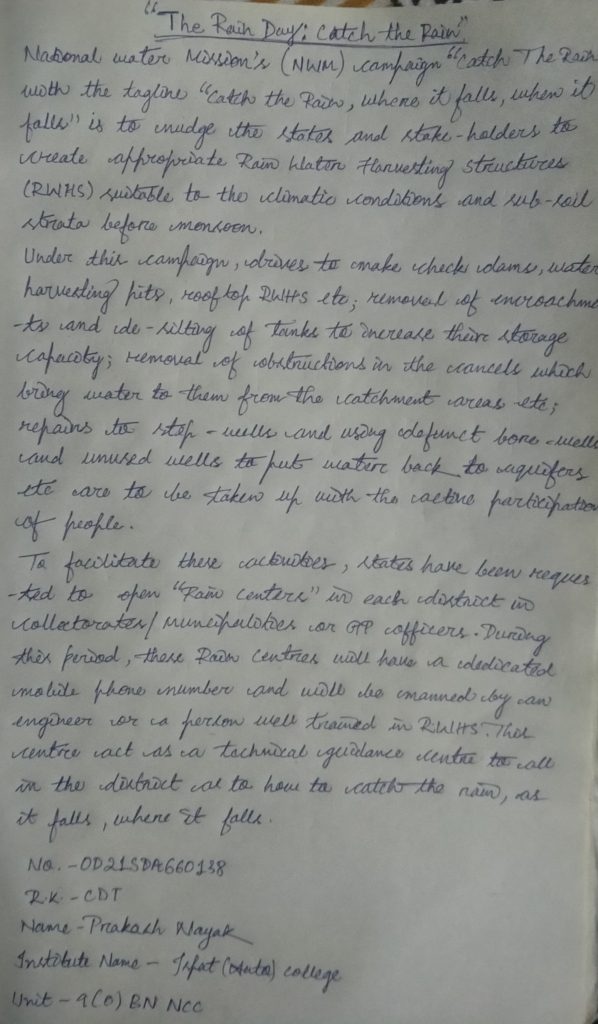 "The Rain Day: Catch the Rain"
National water Mission's (NWM) campaign "Catch The Rain
with the tagline "Catch the Rain, where it falls, when it
falls" is to nudge the states and stake-holders to
create appropriate Rain Water Harvesting Structures
(RWHS) suitable to the climatic conditions and sub-soil
strata before monsoon.
Under this campaign, drives to make check dams, water
harvesting pits, rooftop RWHS etc; removal of encroachme
-ts and de-silting of tanks to increase their storage
capacity; removal of obstructions in the cancels which
bring water to them from the catchment areas etc;
repairs to step-wells and using defunct bore-wells
and unused wells to put water back to aquifers
etc are to be taken up with the active participation
of people.
To facilitate these activities, states have been reques
-ted to open "Rain centers" in each district in
collectorates/municipalities or GP officers. During
this period, these Rain Centres will have a dedicated
mobile phone number and will be manned by an
engineer or a person well trained in RWHS. This
centre act as a technical guidance centre to all
in the district as to how to catch the rain, as
it falls, where it falls.
No. - OD21SDA660138
R.K - CDT
Name - Prakash Nayak
Institute Name - Ispat (Auto) college
Unit - 9(O) BN NCC